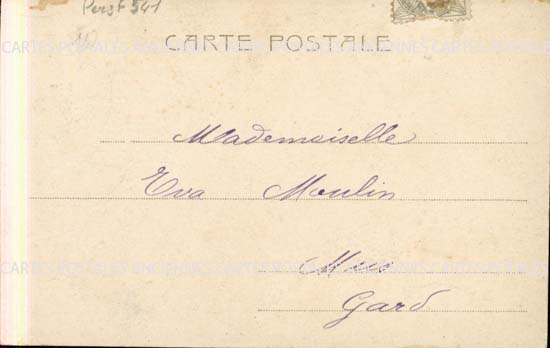 Perso F 541
CARTE POSTALE
CARTES POSTALES ANCIENNES CARTES POSTALES ANCIENNES CARTES POSTALES
Mademoiselle
Eva Moulin
CARTES POSTALES ANCIENNES CARTES POSTALES ANCIENNES CARTES POSTALES
Mus
Gard